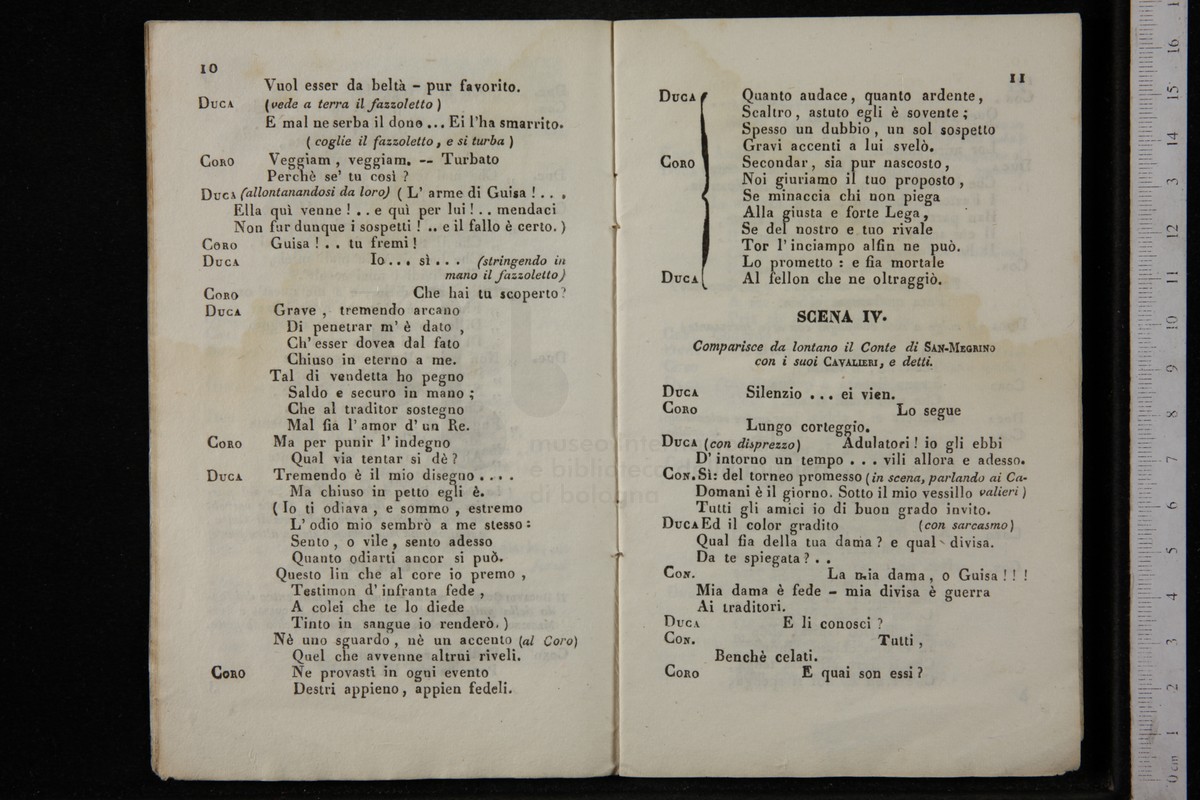 10
Vuol esser da beltà – pur favorito.
Duca (vede a terra il fazzoletto)
E mal ne serba il dono ... Ei l'ha smarrito.
( coglie il fazzoletto, e si turba )
Coro Veggiam, veggiam. -- Turbato
Perchè se' tu così ?
Duca (allontanandosi da loro) ( L' arme di Guisa ! . . .
Ella quì venne ! . . e quì per lui ! . . mendaci
Non fur dunque i sospetti ! .. e il fallo è certo. )
Coro Guisa ! . . tu fremi !
Duca Io . . . sì . . . (stringendo in
mano il fazzoletto)
Coro Che hai tu scoperto?
Duca Grave , tremendo arcano
Di penetrar m' è dato ,
Ch' esser dovea dal fato
Chiuso in eterno a me.
Tal di vendetta ho pegno
Saldo e securo in mano ;
Che al traditor sostegno
Mal fia l' amor d' un Re.
Coro Ma per punir l' indegno
Qual via tentar si dè ?
Duca Tremendo è il mio disegno . . . .
Ma chiuso in petto egli è.
( Io ti odiava , e sommo , estremo
L' odio mio sembrò a me stesso :
Sento , o vile , sento adesso
Quanto odiarti ancor si può.
Questo lin che al core io premo ,
Testimon d' infranta fede ,
A colei che te lo diede
Tinto in sangue io renderò. )
Nè uno sguardo , nè un accento (al Coro)
Quel che avvenne altrui riveli.
Coro Ne provasti in ogni evento
Destri appieno , appien fedeli.
11
Duca Quanto audace , quanto ardente ,
Scaltro , astuto egli è sovente ;
Spesso un dubbio , un sol sospetto
Gravi accenti a lui svelò.
Coro Secondar , sia pur nascosto ,
Noi giuriamo il tuo proposto ,
Se minaccia chi non piega
Alla giusta e forte Lega ,
Se del nostro e tuo rivale
Tor l' inciampo alfin ne può.
Lo prometto : e fia mortale
Duca Al fellon che ne oltraggiò.
SCENA IV.
Comparisce da lontano il Conte di San-Megrino
con i suoi Cavalieri, e detti.
Duca Silenzio . . . ei vien.
Coro Lo segue
Lungo corteggio.
Duca (con disprezzo) Adulatori ! io gli ebbi
D' intorno un tempo . . . vili allora e adesso.
Con. Sì: del torneo promesso (in scena, parlando ai Ca-
Domani è il giorno. Sotto il mio vessillo valieri)
Tutti gli amici io di buon grado invito.
Duca Ed il color gradito (con sarcasmo)
Qual fia della tua dama ? e qual divisa.
Da te spiegata ? . .
Con. La mia dama , o Guisa ! ! !
Mia dama è fede – mia divisa è guerra
Ai traditori.
Duca E li conosci ?
Con. Tutti ,
Benchè celati.
Coro E quai son essi ?